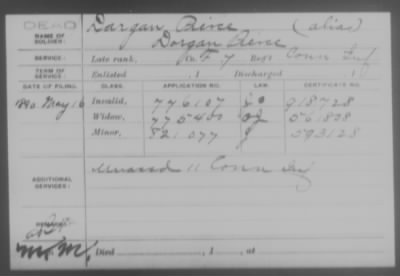 DEAD
NAME OF SOLDIER: Dargan Peirce (alias)
Dorgan Peirce
SERVICE: Late rank, Regt Conn Inf
TERM OF SERVICE: Enlisted , 1 Discharged , 1
DATE OF FILING. CLASS. APPLICATION NO. LAW. CERTIFICATE NO.
1890 May 16 Invalid, 776107 918728
Widow, 775400 561828
Minor, 821077 593128
ADDITIONAL SERVICES: 11 Conn Inf
REMARKS:
Died , 1 , at